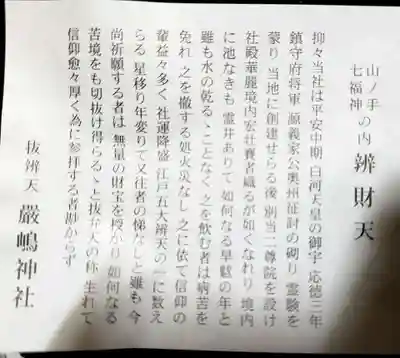 山ノ手の内
七福神
辨財天
抑々当社は平安中期 白河天皇の御宇 応徳三年
鎮守府将軍 源義家公奥州征討の砌り 霊験を
蒙り 当地に創建せらる後 別当二尊院を設け
社殿華麗境内宏壮賽者織るが如くなれり 境内
に池なきも 霊井ありて 如何なる旱魃の年と
雖も水の乾るゝことなく 之を飲む者は病苦を
免れ 之を撒する処火災なし 之に依て信仰の
輩益々多く 社運隆盛 江戸五大辨天の一に数え
らる 星移り年変りて又往者の悌なしと雖も 今
尚祈願する者は 無量の財宝を授かり 如何なる
苦境をも切抜け得らるゝと抜弁天の称 生れて
信仰愈々厚く為に参拝する者尠からず
抜辨天 嚴嶋神社